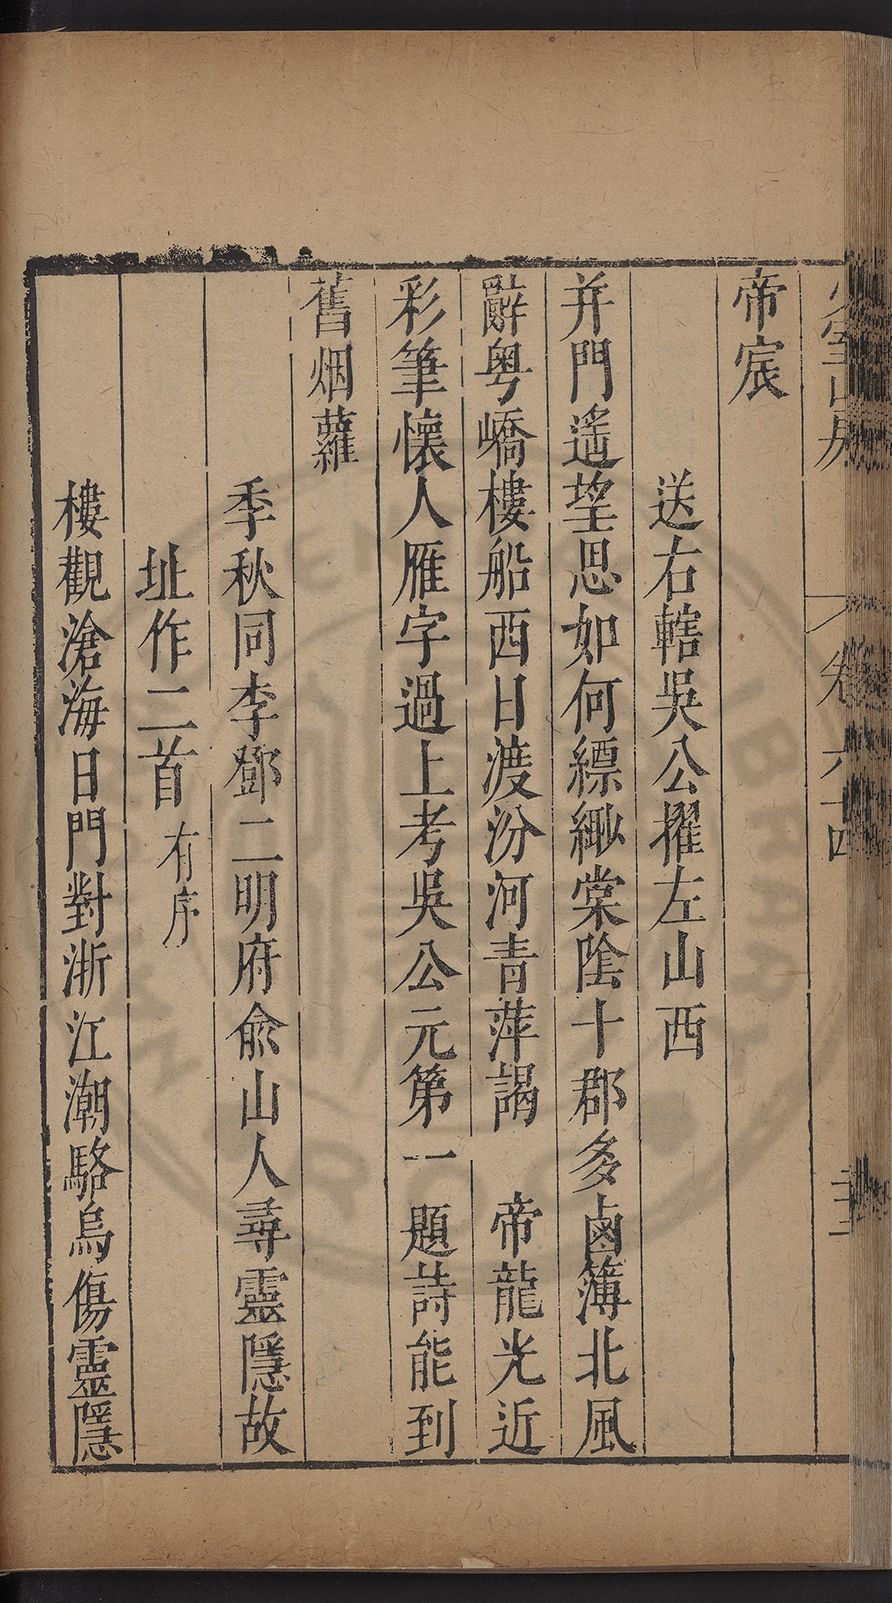 少室山房 卷六十四
帝宸
送右轄吳公擢左山西
并門遙望思如何縹緲棠陰十郡多鹵簿北風
辭粤嶠樓船西日渡汾河青萍謁 帝龍光近
彩筆懷人雁字過上考吳公元第一題詩能到
舊烟蘿
季秋同李鄧二明府俞山人尋靈隱故
址作二首有序
樓觀滄海日門對浙江潮駱烏傷靈隱